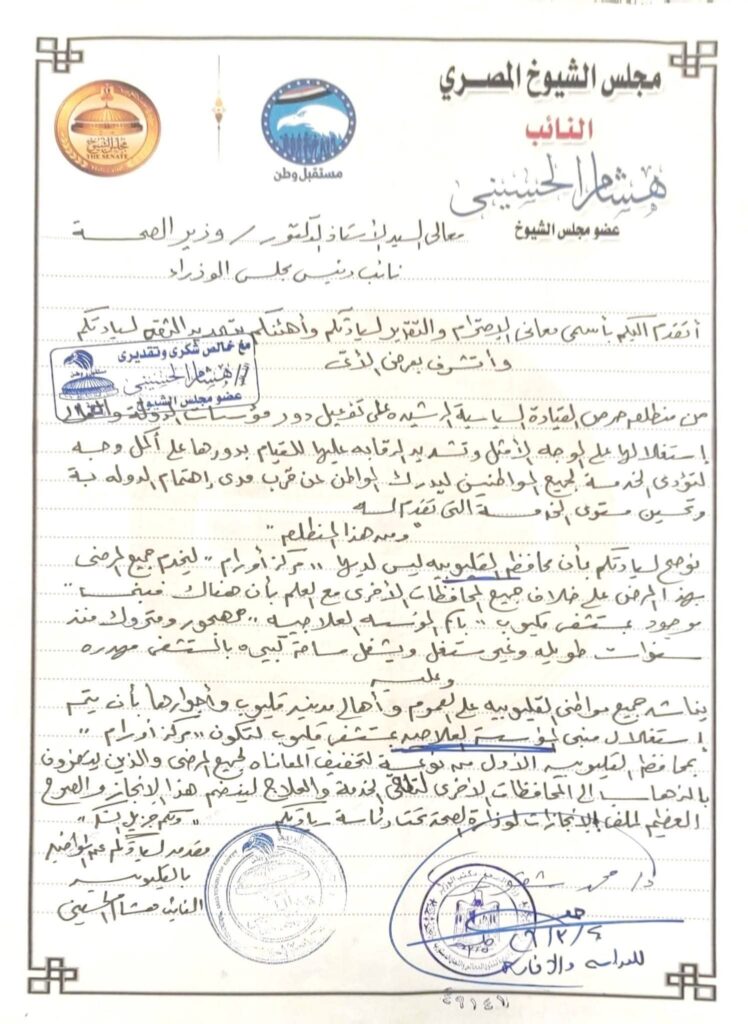 مجلس الشيوخ المصرى
النائب
هشام الحسينى
عضو مجلس الشيوخ
مجلس الشيوخ
THE SENATE
مستقبل وطن
معالى السيد الأستاذ الدكتور / وزير الصحة
نائب رئيس مجلس الوزراء
أتقدم اليكم بأسمى معانى الإحترام والتقدير لسيادتكم وأهنئكم بتجديد الثقه لسيادتكم
وأتشرف بعرض الأتى
مع خالص شكرى وتقديرى
هشام الحسينى
عضو مجلس الشيوخ
من منطلق حرص القيادة السياسية الرشيده على تفعيل دور مؤسسات الدولة
إستغلالها على الوجه الأمثل وتشديد الرقابه عليها للقيام بدورها على أكمل وجه
لتؤدى الخدمة لجميع المواطنين ليدرك المواطن عن قرب مدى إهتمام الدوله به
وتحسين مستوى الخدمة التى تقدم له
"ومن هذا المنطلق"
نوضح لسيادتكم بأن محافظة القليوبيه ليس لديها "مركز أورام" ليخدم جميع المرضى
بهذا المرض على خلاف جميع المحافظات الأخرى مع العلم بأن هناك
موجود بمستشفى قليوب "باسم المؤسسه العلاجيه" مهجور ومتروك منذ
سنوات طويله وغير مستغل ويشغل مساحة كبيره بالمستشفى مهدره
وعليه
يناشد جميع مواطنى القليوبيه على العموم وأهالى مدينة قليوب وأجوارها بأن يتم
إستغلال مبنى المؤسسة العلاجيه بمستشفى قليوب لتكون "مركز أورام"
بمحافظة القليوبيه الأول من نوعه لتخفيف المعاناه لجميع المرضى والذين يلجئون
بالذهاب إلى المحافظات الأخرى لتلقى الخدمة والعلاج لينضم هذا الإنجاز والصرح
العظيم لملف الإنجازات لوزارة الصحة تحت رئاسة سيادتكم
"ولكم جزيل الشكر"
مقدمه لسيادتكم عن المواطنين
بالقليوبيه
النائب هشام الحسينى
د/ محمد
للدراسه والإفاده